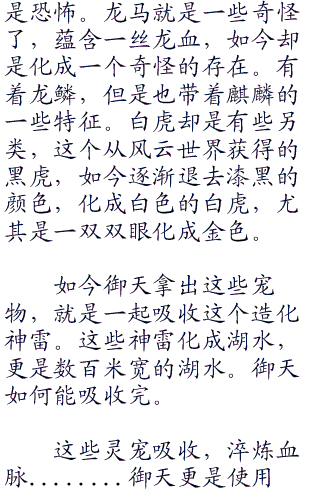 是恐怖。龙马就是一些奇怪
了，蕴含一丝龙血，如今却
是化成一个奇怪的存在。有
着龙鳞，但是也带着麒麟的
一些特征。白虎却是有些另
类，这个从风云世界获得的
黑虎，如今逐渐退去漆黑的
颜色，化成白色的白虎，尤
其是一双双眼化成金色。
如今御天拿出这些宠
物，就是一起吸收这个造化
神雷。这些神雷化成湖水，
更是数百米宽的湖水。御天
如何能吸收完。
这些灵宠吸收，淬炼血
脉........御天更是使用